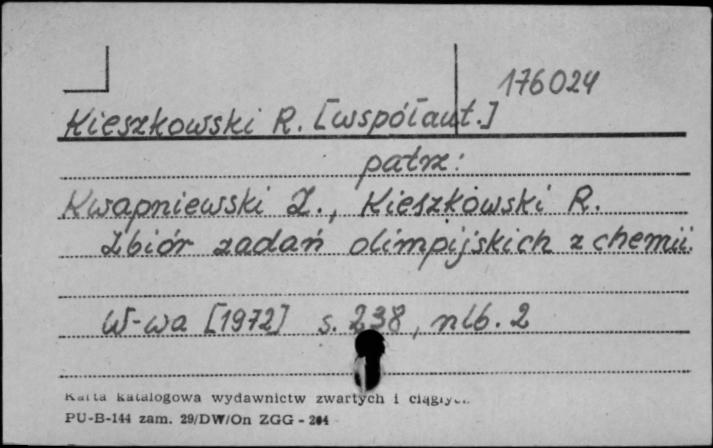 176024
Kieszkowski R. [współaut.]
patrz:
Kwapniewski Z., Kieszkowski R.
Zbiór zadań olimpijskich z chemii.
W-wa [1972] s. 238, nlb. 2
Karta katalogowa wydawnictw zwartych i ciągłych
PU-B-144 zam. 29/DW/On ZGG - 204